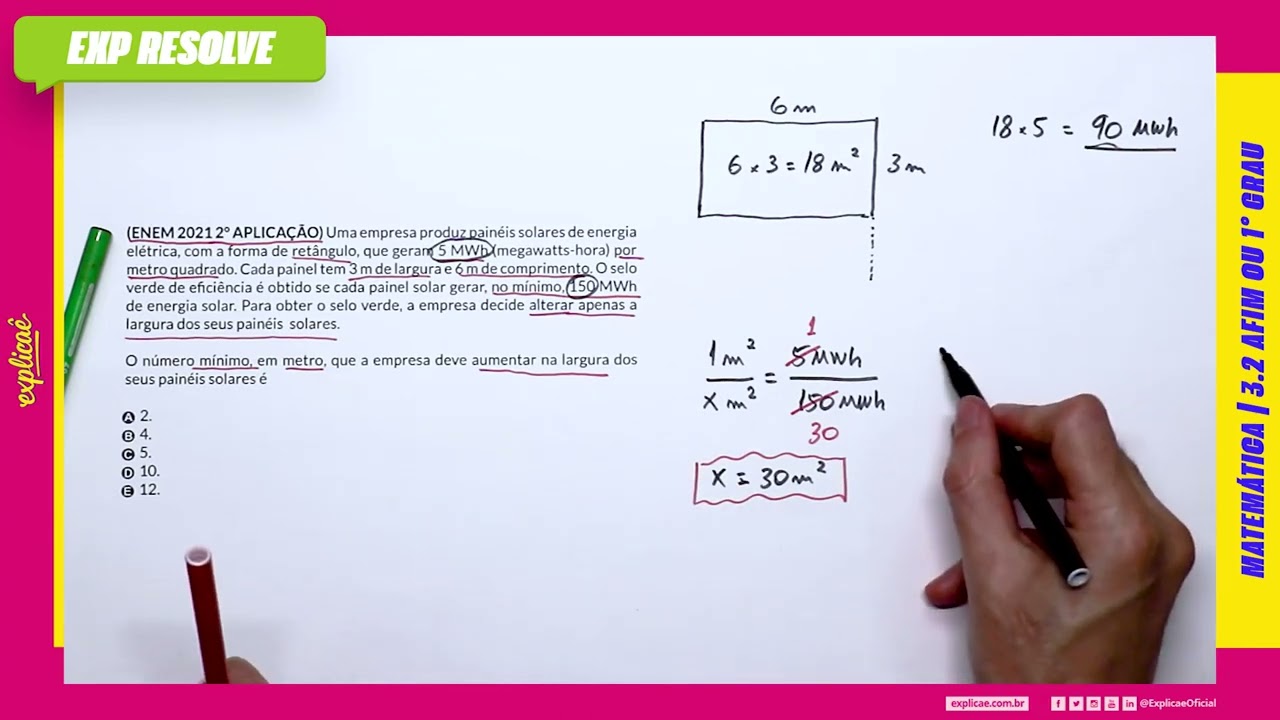 EXP RESOLVE
6 m
6 × 3 = 18 m²
3 m
18 × 5 = 90 MWh
(ENEM 2021 2° APLICAÇÃO) Uma empresa produz painéis solares de energia
elétrica, com a forma de retângulo, que geram 5 MWh (megawatts-hora) por
metro quadrado. Cada painel tem 3 m de largura e 6 m de comprimento. O selo
verde de eficiência é obtido se cada painel solar gerar, no mínimo, 150 MWh
de energia solar. Para obter o selo verde, a empresa decide alterar apenas a
largura dos seus painéis solares.
O número mínimo, em metro, que a empresa deve aumentar na largura dos
seus painéis solares é
A 2.
B 4.
C 5.
D 10.
E 12.
1
1 m² = 5 MWh
x m² 150 MWh
30
x = 30 m²
explicaê
MATEMÁTICA | 3.2 AFIM OU 1° GRAU
explicae.com.br
@ExplicaeOficial